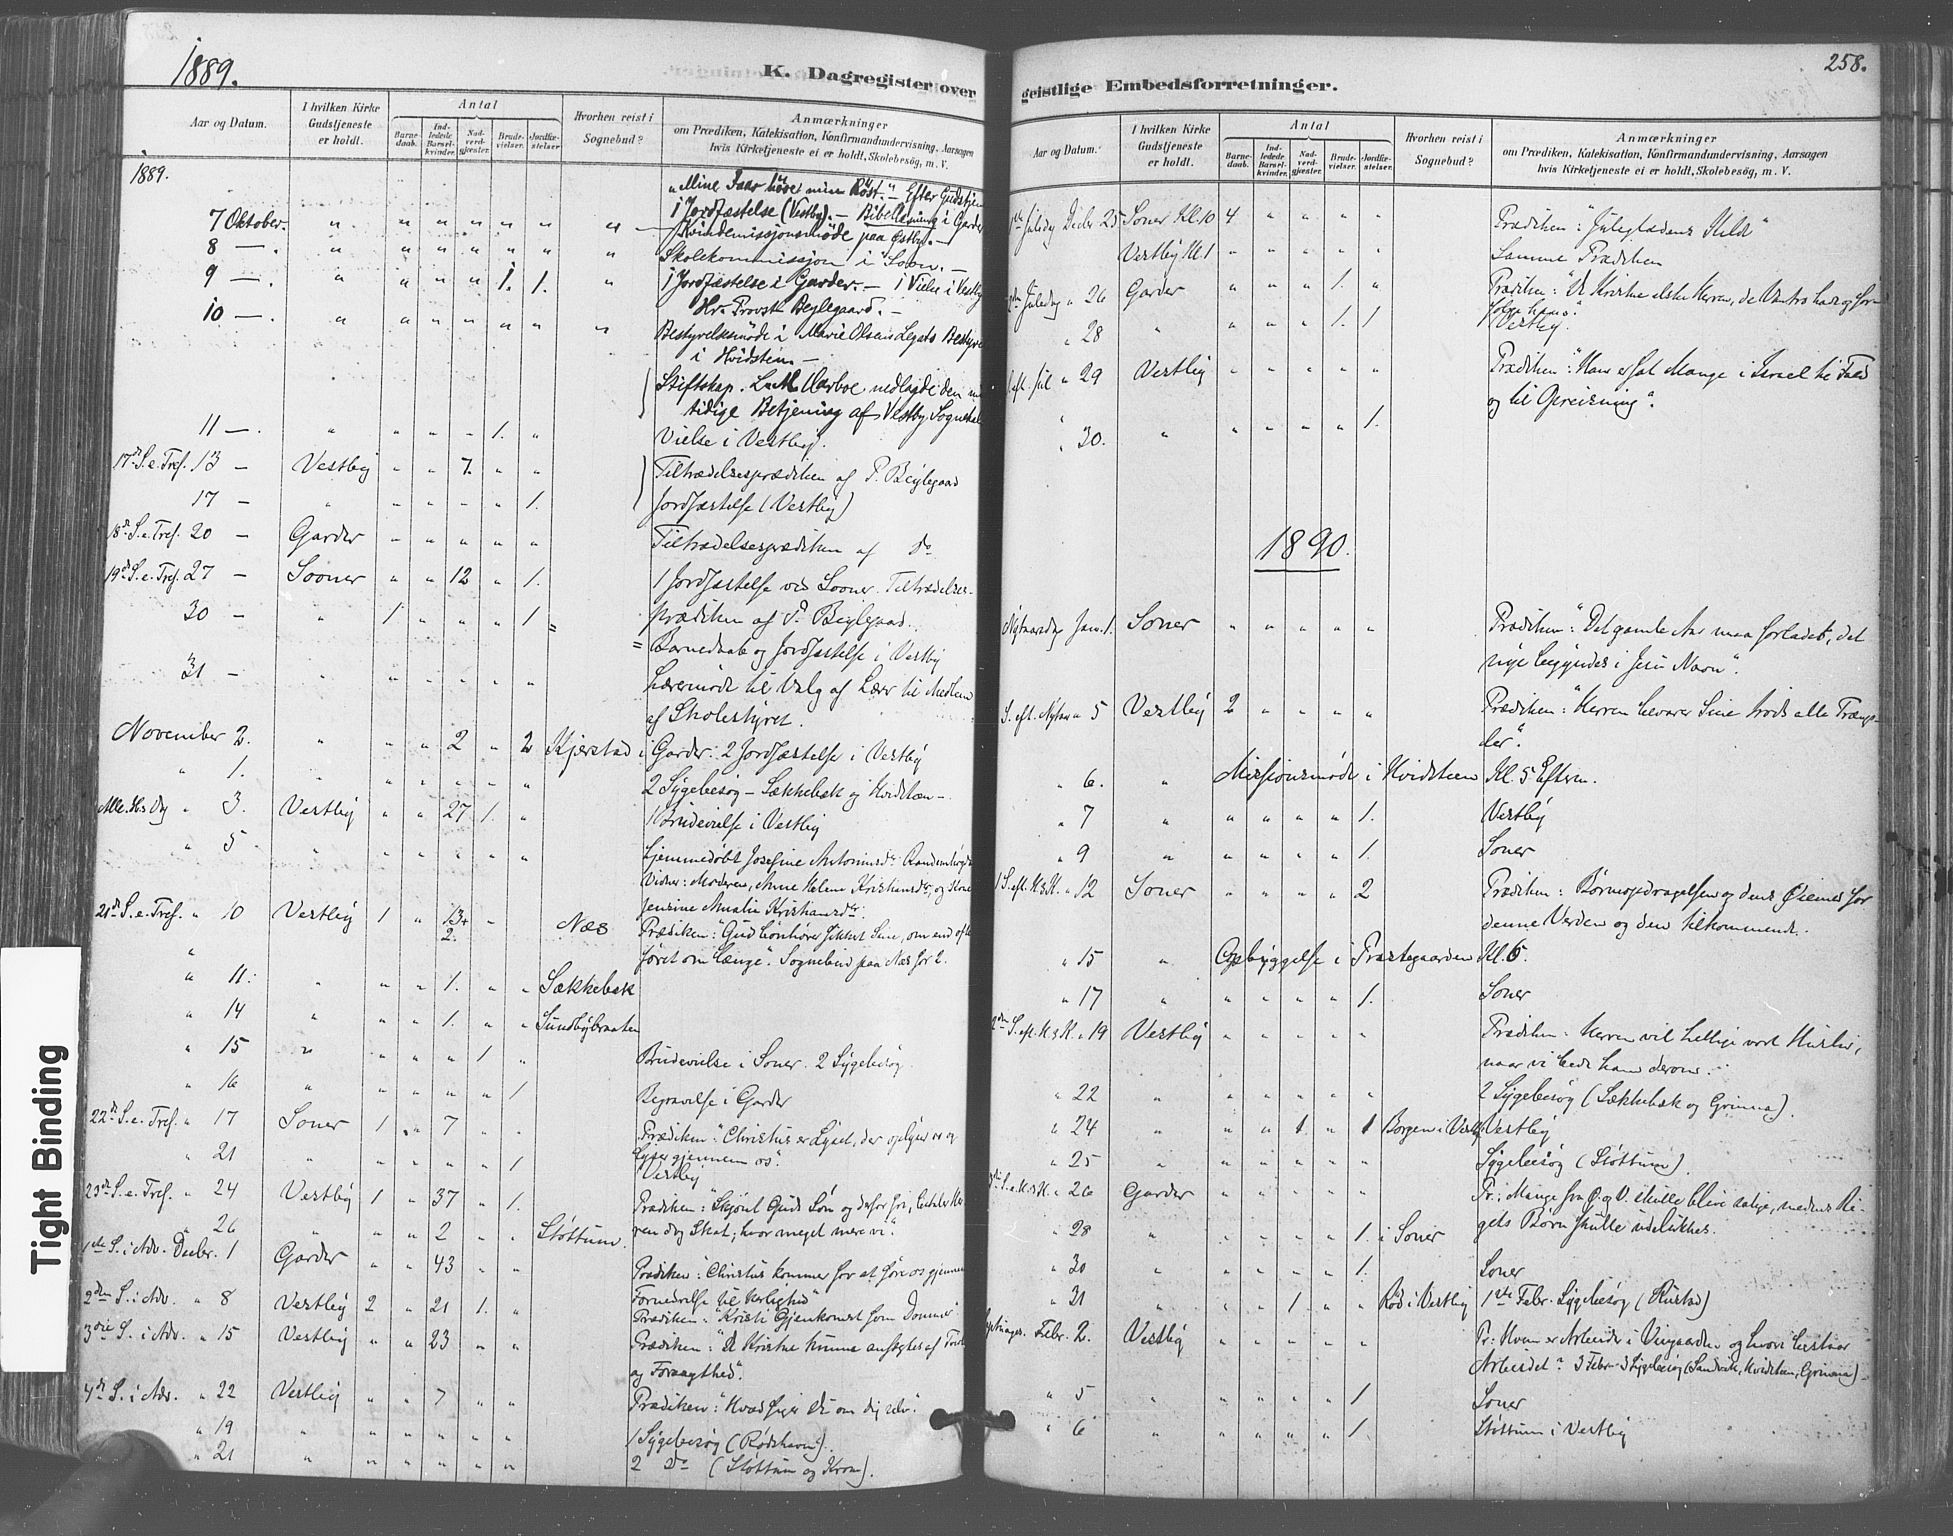 1889.
K. Dagregister over
Aar og Datum.
I hvilken Kirke Gudstjeneste er holdt.
Antal
Barnedaab.
Indledede Barselkvinder.
Nadverdgjæster.
Brudevielser.
Jordfæstelser.
Hvorhen reist i Sognebud?
Anmærkninger
om Prædiken, Katekisation, Konfirmandundervisning, Aarsagen
hvis Kirketjeneste ei er holdt, Skolebesøg, m. V.
1889.
"Mine Faar höre min Röst." Efter Gudstjen
7 Oktober. " " " " " " " 1 Jordfæstelse (Vestby). — Bibellæsning i Garder
8 — . " " " " " " " Kvindemissjonsmöde paa Østby. —
Skolekommissjon i Soon. —
9 — . " " " " 1. 1. " 1 Jordfæstelse i Garder. — 1 Vielse i Vestby
Hr. Provst Beylegaard. —
10 — . " " " " " " " Bestyrelsesmöde i Marie Olsens Legats Bestyre
i Hvidsten. —
Stiftskap. L. M. Aarboe nedlagde den mid
tidige Betjening af Vestby Sognekal
11 — . " " " " 1. " Vielse i Vestby.
17de S. e. Tref. 13 — Vestby " " 7. " " Tiltrædelsesprædiken af P. Beylegaad
17 — " " " " " 1. Jordfæstelse (Vestby)
18de S. e. Tref. 20 — Garder " " " " " Tiltrædelsesprædiken af do
19de S. e. Tref. 27 — Sooner " " 12 " 1. 1 Jordfæstelse ved Sooner. Tiltrædelses-
prædiken af P. Beylegaad.
30 — " 1 " " " 1 = = Barnedaab og Jordfæstelse i Vestby
31 — " " " " " " Læremöde til Valg af Lærer til Medlem
af Skolestyret.
November 2. " " " 2 " 2 Kjærstad i Garder: 2 Jordfæstelse i Vestby
" 1. " " " " " " 2 Sygebesøg — Sækkebæk og Hvidsten —
Alle. H. Dg " 3. Vestby " " 27 1. " 1 Brudevielse i Vestby
" 5 " " " " " " Hjemmedøbt Josefine Antonius
Vidner: Moderen, Anne Helene Kristiansdr, og
Jensine Amalie Kristiansdr.
21de S. e. Tref. " 10 Vestby 1 " 13+2. " Næs Prædiken: "Gud bönhører Sine, om end ofte
om længe. Sognebud paa Næs for 2.
" 11. " " " 1. " " Sækkebæk
" 14 " " " 1. " " Sundbybraaten
" 15 " " " " 1 " Brudevielse i Soner. 2 Sygebesøg.
" 16 " " " " " 1 Begravelse i Garder
22de S. e. Tref. " 17 Soner 1 " 7 " " Prædiken: "Christus er Lyset, der oplyser os og
lyser gjennem os".
" 21 " " " " " 1 Vestby
23de S. e. Tref. " 24 Vestby 1 " 37 " 1. Prædiken: "Skjönt Guds Søn og derfor fri, betaler Her
ren dog Skat; hvor meget mere vi".
" 26 " " " 2 " " Støttum.
1ste S. i Adv. Decbr. 1 Garder " " 43 " " Prædiken: "Christus kommer for at føre os gjennem
Fornedrelse til Herlighed"
2den S. i Adv. " 8 Vestby 2 " 21 1. " Prædiken: "Kristi Gjenkomst som Dommer
3die S. i Adv. " 15 Vestby " " 23 " " Prædiken: "De Kristne kunne anfægtes af Tvivl
og Forsagthed".
4de S. i Adv. " 22 Vestby " " 7 " " Prædiken: "Hvad siger du om dig selv".
" 19 " " " " " " 1 Sygebesøg (Rødshavn).
" 21 " " " " " " 2 do (Støttum og Krom).
258.
geistlige Embedsforretninger.
Aar og Datum.
I hvilken Kirke Gudstjeneste er holdt.
Antal
Barnedaab.
Indledede Barselkvinder.
Nadvergjæster.
Brudevielser.
Jordfæstelser.
Hvorhen reist i Sognebud?
Anmærkninger
om Prædiken, Katekisation, Konfirmandundervisning, Aarsagen
hvis Kirketjeneste ei er holdt, Skolebesøg, m. V.
Juledag Decbr 25 Soner Kl. 10 4 " " " " Prædiken: "Juleglædens Kilde"
Vestby Kl. 1 " " " " " Samme Prædiken
Juledag " 26 Garder " " " 1. " Prædiken: "De Kristne elske Herren, de Vantro hade og for-
følge ham".
" 28 " " " " 1. 1 Vestby.
eft. Jul " 29 Vestby " " " " " Prædiken: "Han er sat Mange i Israel til Fald
og til Opreisning".
" 30. " " " " " 1.
1890.
Nytaarsdag Jan. 1. Soner " " " " " Prædiken: "Det gamle Aar maa forlades, det
nye begyndes i Jesu Navn".
S. eft. Nytaar " 5 Vestby 2 " " " " Prædiken: "Herren bevarer Sine trods alle Træng-
sler".
" 6. " Missionsmöde i Hvidsteen Kl. 5 Efterm.
" 7 " " " " " 1. Vestby
" 9 " " " " " 1. Soner
1 S. eft. H3K. " 12 Soner " " " " 2 Prædiken: Børneopdragelsen og dens Øiemed for
denne Verden og den tilkommende.
" 15 " Opbyggelse i Præstegaarden Kl. 6.
" 17 " " " " " 1. Soner
2den S. eft. H3K. " 19 Vestby " " " " " Prædiken: Herren vil hellige vort Husliv,
naar vi bede ham derom.
" 22 " " " " " " 2 Sygebesøg (Sækkebæk og Grimna).
" 24 " " " 1. " 1 Borgen i Vestby Vestby
" 25 " " " " " " Sygebesøg (Støttum).
3die S. e. H3K. " 26 Garder " " " " " Pr.: Mange fra Ø. og V. skulle blive salige, medens Ri-
gets Børn skulle udelukkes.
" 28 " " " " " 1. i Soner
" 30 " " " " " 1. Soner
" 31 " " " 1 " " Rød i Vestby 1ste Febr. Sygebesøg (Rustad)
Febr. 2. Vestby " " " " " Pr.: Hvem er Arbeider i Vingaarden og hvori bestaar
Arbeidet? 3 Febr. 3 Sygebesøg (Sandvik, Hvidsten, Grimna)
" 5 " " " " " 1 Soner
" 6 " " " " " 1 Støttum i Vestby
Tight Binding